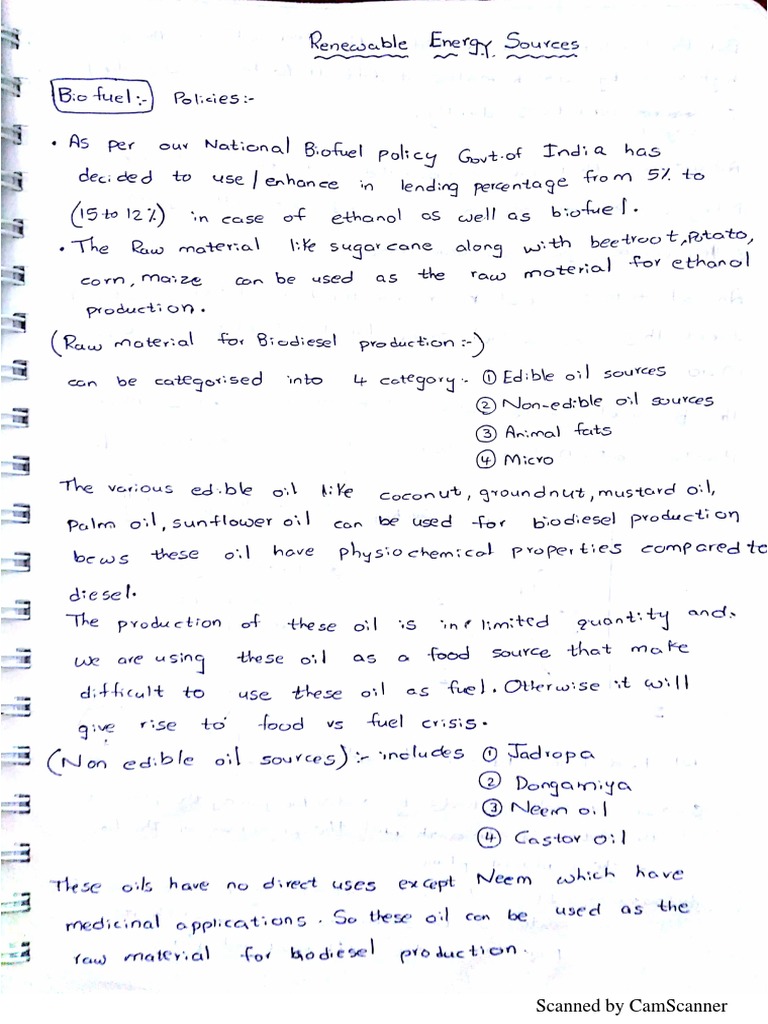 Renewable Energy Sources
Biofuel:- Policies:-
• As per our National Biofuel policy Govt.of India has
decided to use/enhance in lending percentage from 5% to
(15 to 12%) in case of ethanol as well as biofuel.
• The Raw material like sugarcane along with beetroot, Potato,
corn, maize can be used as the raw material for ethanol
production.
(Raw material for Biodiesel production:-)
can be categorised into 4 category:- ① Edible oil sources
② Non-edible oil sources
③ Animal fats
④ Micro
The various edible oil like coconut, groundnut, mustard oil,
Palm oil, sunflower oil can be used for biodiesel production
bcws these oil have physiochemical properties compared to
diesel.
The production of these oil is in limited quantity and
we are using these oil as a food source that make
difficult to use these oil as fuel. Otherwise it will
give rise to food vs fuel crisis.
(Non edible oil sources):- includes ① Jadropa
② Dongamiya
③ Neem oil
④ Castor oil
These oils have no direct uses except Neem which have
medicinal applications. So these oil can be used as the
raw material for biodiesel production.
Scanned by CamScanner